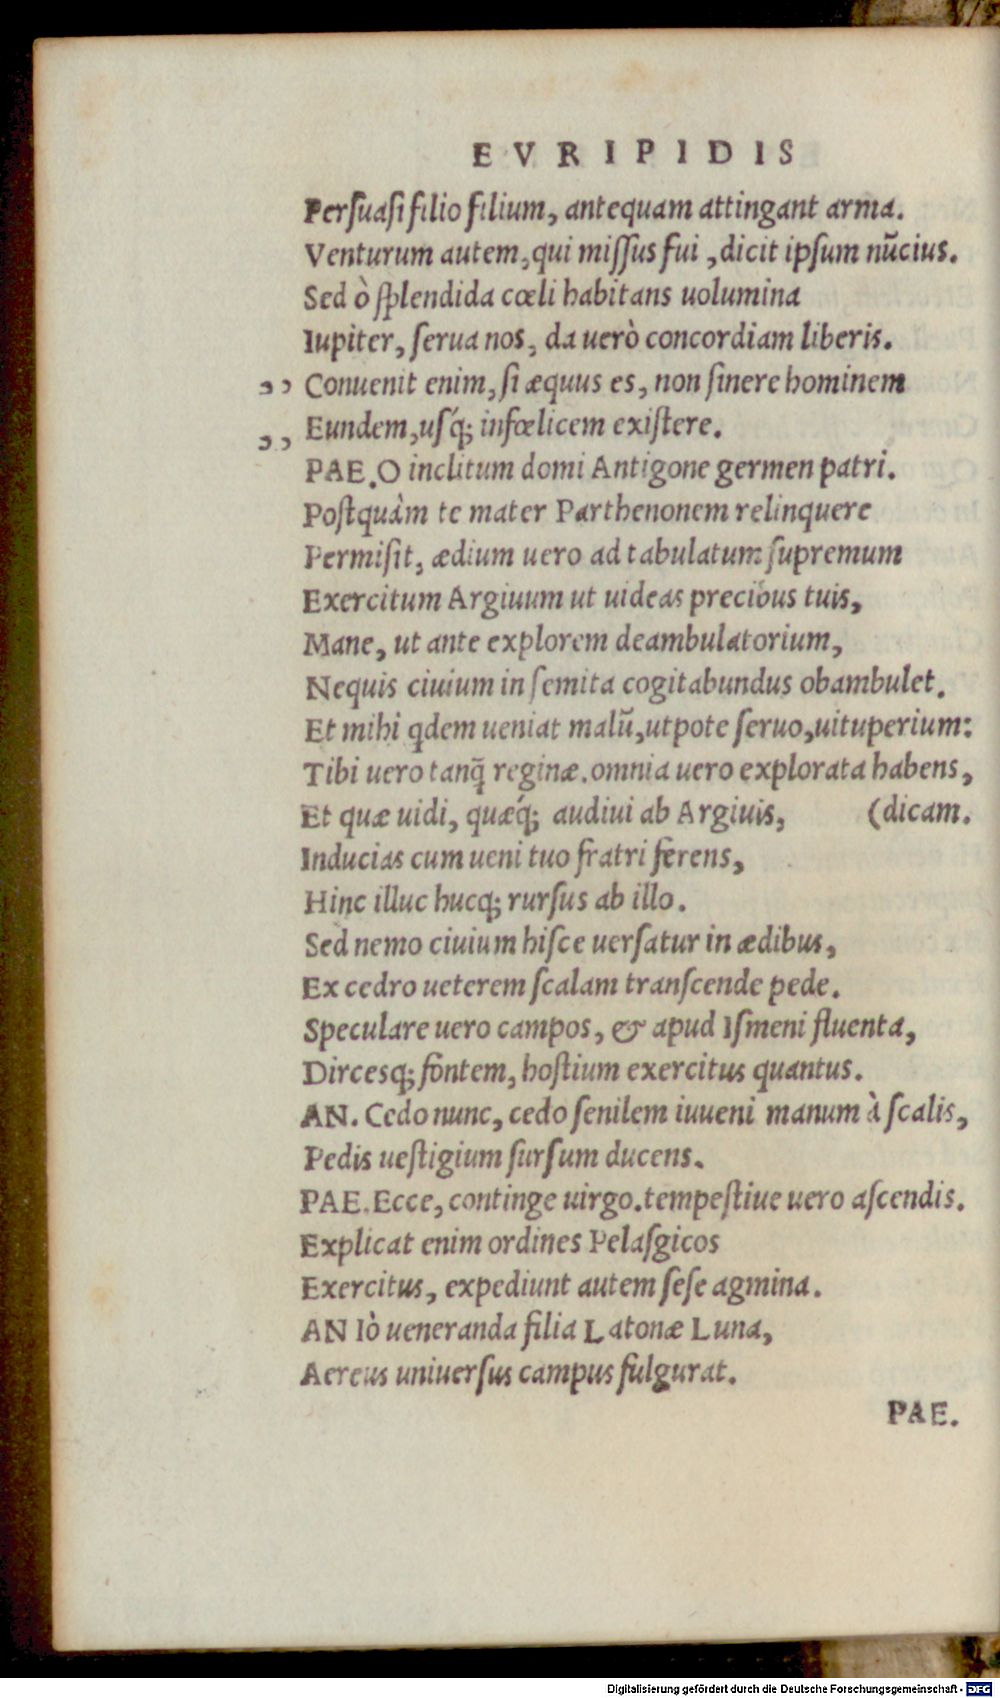 EVRIPIDIS
Persuasi filio filium, antequam attingant arma.
Venturum autem, qui missus fui, dicit ipsum nūcius.
Sed ò splendida cœli habitans uolumina
Iupiter, serua nos, da uerò concordiam liberis.
,, Conuenit enim, si æquus es, non sinere hominem
,, Eundem, usq́; infœlicem existere.
PAE. O inclitum domi Antigone germen patri.
Postquàm te mater Parthenonem relinquere
Permisit, ædium uero ad tabulatum supremum
Exercitum Argiuum ut uideas precibus tuis,
Mane, ut ante explorem deambulatorium,
Nequis ciuium in semita cogitabundus obambulet.
Et mihi qdem ueniat malū, utpote seruo, uituperium:
Tibi uero tanq̄ reginæ. omnia uero explorata habens,
Et quæ uidi, quæq́; audiui ab Argiuis, (dicam.
Inducias cum ueni tuo fratri ferens,
Hinc illuc hucq; rursus ab illo.
Sed nemo ciuium hisce uersatur in ædibus,
Ex cedro ueterem scalam transcende pede.
Speculare uero campos, & apud Ismeni fluenta,
Dircesq; fontem, hostium exercitus quantus.
AN. Cedo nunc, cedo senilem iuueni manum à scalis,
Pedis uestigium sursum ducens.
PAE. Ecce, continge uirgo. tempestiue uero ascendis.
Explicat enim ordines Pelasgicos
Exercitus, expediunt autem sese agmina.
AN Iò ueneranda filia Latonæ Luna,
Aereus uniuersus campus fulgurat.
PAE.
Digitalisierung gefördert durch die Deutsche Forschungsgemeinschaft - DFG